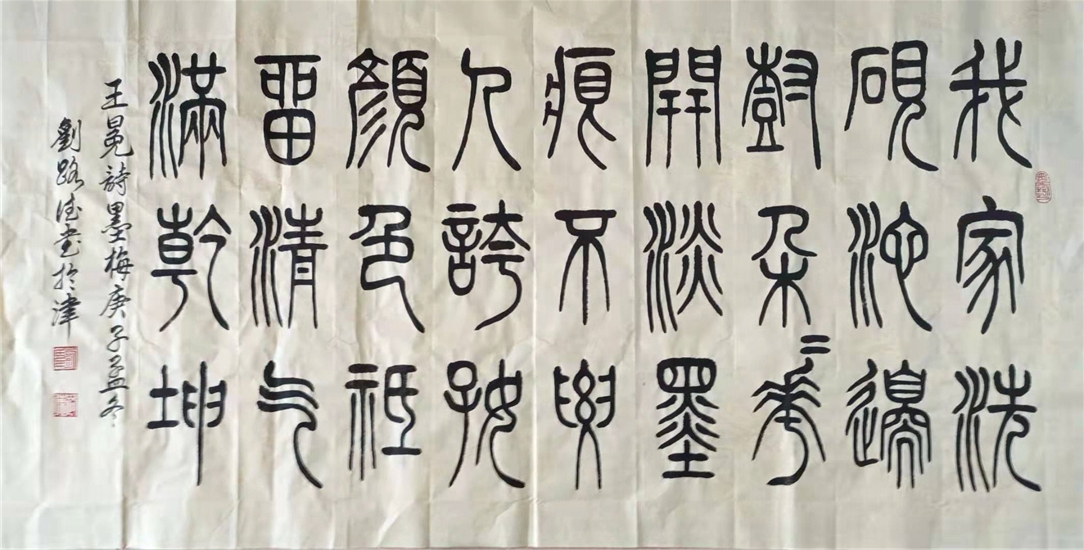 我家洗
硯池邊
樹朵〻華
開淡墨
痕不要
人誇好
顏色祗
留清气
滿乾坤
王冕詩墨梅庚子孟冬
劉路德書於津